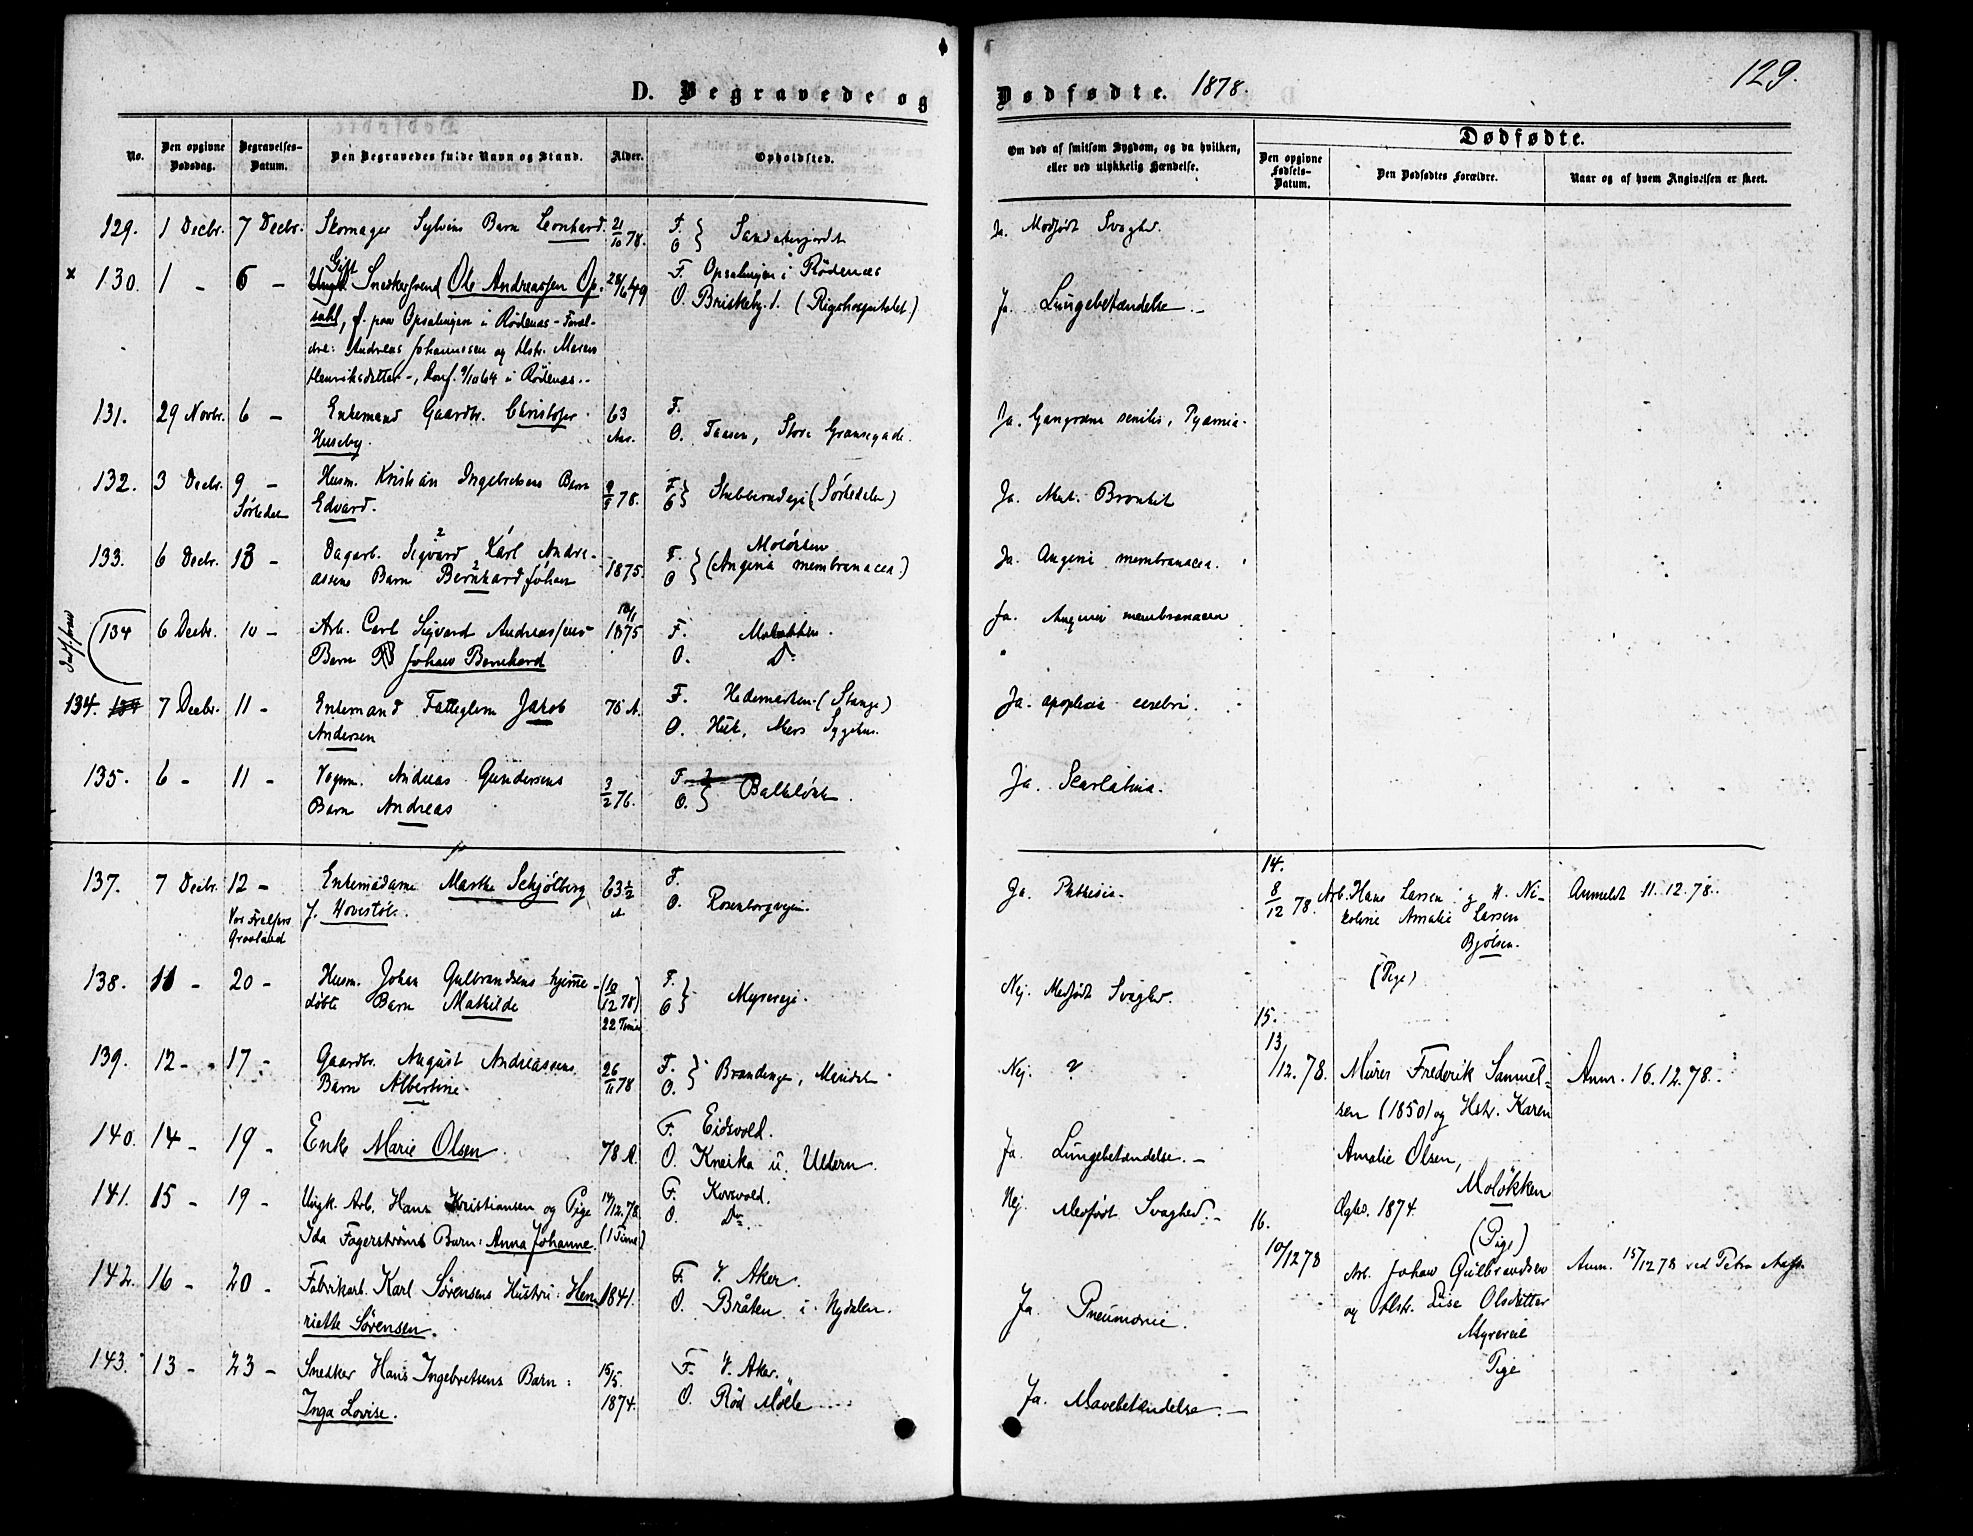 D. Begravede og
Dødfødte. 1878.
129.
No.
Den opgivne Dødsdag.
Begravelses-Datum.
Den Begravedes fulde Navn og Stand.
Alder.
Opholdssted.
Om død af smitsom Sygdom, og da hvilken, eller ved ulykkelig Hændelse.
Dødfødte.
Den opgivne Fødsels-Datum.
Den Dødfødtes Forældre.
Naar og af hvem Angivelsen er skeet.
129. 1 Decbr. 7 Decbr. Skomager Barn Leonhard. 21/10 78. F. O.
Ja. Medfødt Svaghd.
Gift
x 130. 1 - 6 - Snedkersvend Ole Andreassen Op- 28/6 49 F. Opsalingen i Rödenæs
sahl, f. paa Opsalingen i Rödenæs - Foræl- O. Briskeby. 1. (Rigshospitalet.)
dre: Andreas Johannesen og Hstr. Maren
Henriksdatter -, Konf. 9/10 64 i Rödenæs.
Ja. Lungebetændelse. -
131. 29 Novbr. 6 - Enkemand Gaardbr. Christofer 63 F.
Huseby. Aar. O. Taasen, Store Grønsegade.
Ja. Gangræna senilis, Pyæmia.
132. 3 Decbr. 9 - Husm. Kristian Ingebretsens Barn F.
Sørkedal Edvard. 78. O (Sørkedalen)
Ja. Akut. Bronkit
133. 6 Decbr. 13 - Dagarb. Sigvard Karl Andre- F. Moløkken
assens Barn Bernhard Johan 1875. O (Angina membranacea.)
Ja. Angina membranacea.
134 6 Decbr. 10 - Arb. Carl Sigvard Andreassens 10/1 1875 F. Moløkken.
Barn Johan Bernhard O. Do
Ja. Angina membranacea
134. 7 Decbr. 11 - Enkemand Fattiglem Jakob 75 A. F. Hedemarken (Stange)
Andersen O. Sygehus.
Ja. apoplexia cerebri.
135. 6 - 11 - Vognm. Andreas Gundersens 3/2 76. F.
Barn Andreas O. Balkeløkk.
Ja. Scarlatina.
137. 7 Decbr. 12 - Enkemadame Marthe Schjølberg 63 1/2 F.
Vor Frelsers Gravlund f. Hovestøl. A O. Rosenborgveien.
Ja. Phthisis.
14.
8/12 78. Arb. Hans Larsen og H. Ni-
koline Amalie Larsen
Bjølsen.
(Pige)
Anmeldt 11.12.78.
138. 11 - 20 - Husm. Johan Gulbrandsens hjemme- (10/12 78) F.
døbte Barn Mathilde 22 Timer O Myrereie.
Nej. Medfødt Svaghd.
139. 12 - 17 - Gaardbr. August Andreassens 26/11 78 F.
Barn Albertine. O.
Nej. ?
15.
13/12. 78. Murer Frederik Samuel-
sen (1850) og Hstr. Karen
Amalie Olsen,
Moløkken
Ogsa. 1874.
(Pige)
Anm. 16.12.78.
140. 14 - 19 - Enke Marie Olsen. 78 A. F. Eidsvold.
O. Kneika u. Ullern.
Ja. Lungebetændelse. -
141. 15 - 19 - Ungk. Arb. Hans Kristiansen og Pige 14/12.78. F. Korsvold.
Ida Fagerstrøms Barn: Anna Johanne. (1 Time) O. Do.
Nej. Medfødt Svaghed. -
142. 16 - 20 - Fabrikarb. Karl Sørensens Hustru: Hen- 1841. F. V. Aker.
riette Sørensen. O. Bråten i Nydalen.
Ja. Pneumonie.
16.
10/12 78 Arb. Johan Gulbrandsen
og Hstr. Lise Olsdatter
Myrereie
Pige
Anm. 15/12 78 ved Petra
143. 13 - 23 - Snedker Hans Ingebretsens Barn: 15/5. F. V. Aker.
Inga Lovise. 1874. O. Rød Mølle
Ja. Mavebetændelse. -